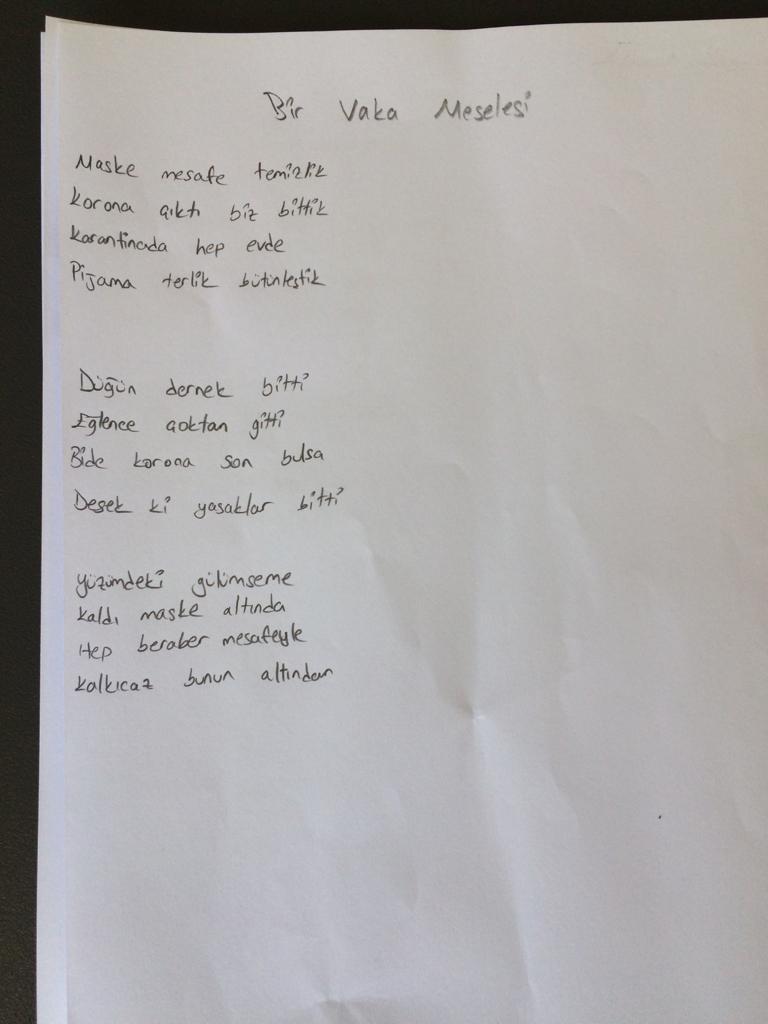 Bir Vaka Meselesi
Maske mesafe temizlik
Korona çıktı biz bittik
Karantinada hep evde
Pijama terlik bütünleştik
Düğün dernek bitti
Eğlence çoktan gitti
Bide korona son bulsa
Desek ki yasaklar bitti
Yüzümdeki gülümseme
Kaldı maske altında
Hep beraber mesafeyle
Kalkıcaz bunun altından